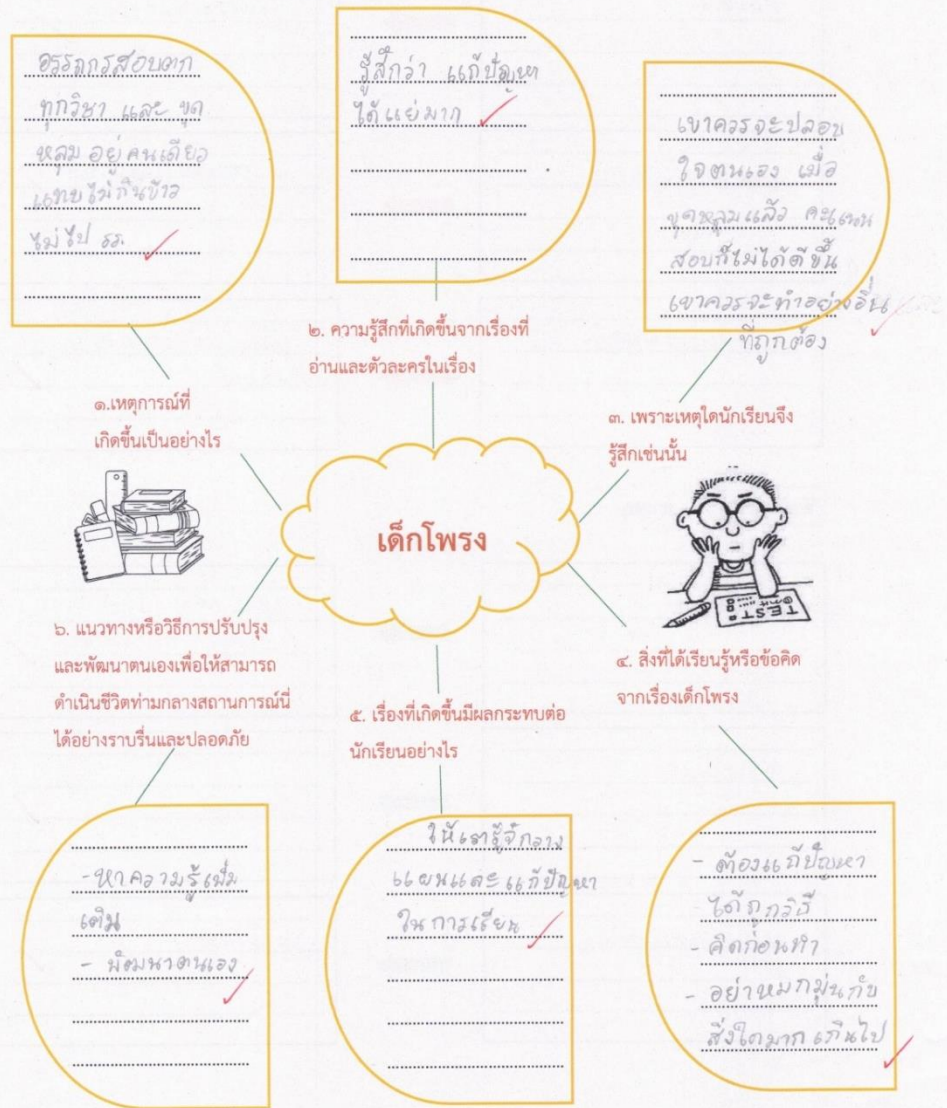 อรรถกรสอบตก
ทุกวิชา และ ขุด
หลุม อยู่ คนเดียว
แทบไม่กินข้าว
ไม่ไป รร.
รู้สึกว่า แก้ปัญหา
ได้แย่มาก
เขาควรจะปลอบ
ใจตนเอง เมื่อ
ขุดหลุมแล้ว คะแนน
สอบก็ไม่ได้ดีขึ้น
เขาควรจะทำอย่างอื่น
ที่ถูกต้อง
๑.เหตุการณ์ที่
เกิดขึ้นเป็นอย่างไร
๒. ความรู้สึกที่เกิดขึ้นจากเรื่องที่
อ่านและตัวละครในเรื่อง
๓. เพราะเหตุใดนักเรียนจึง
รู้สึกเช่นนั้น
เด็กโพรง
TEST
๖. แนวทางหรือวิธีการปรับปรุง
และพัฒนาตนเองเพื่อให้สามารถ
ดำเนินชีวิตท่ามกลางสถานการณ์นี่
ได้อย่างราบรื่นและปลอดภัย
๕. เรื่องที่เกิดขึ้นมีผลกระทบต่อ
นักเรียนอย่างไร
๔. สิ่งที่ได้เรียนรู้หรือข้อคิด
จากเรื่องเด็กโพรง
-หาความรู้เพิ่ม
เติม
- พัฒนาตนเอง
ให้เรารู้จักวาง
แผนและแก้ปัญหา
ในการเรียน
- ต้องแก้ปัญหา
ได้ถูกวิธี
- คิดก่อนทำ
- อย่าหมกมุ่นกับ
สิ่งใดมากเกินไป